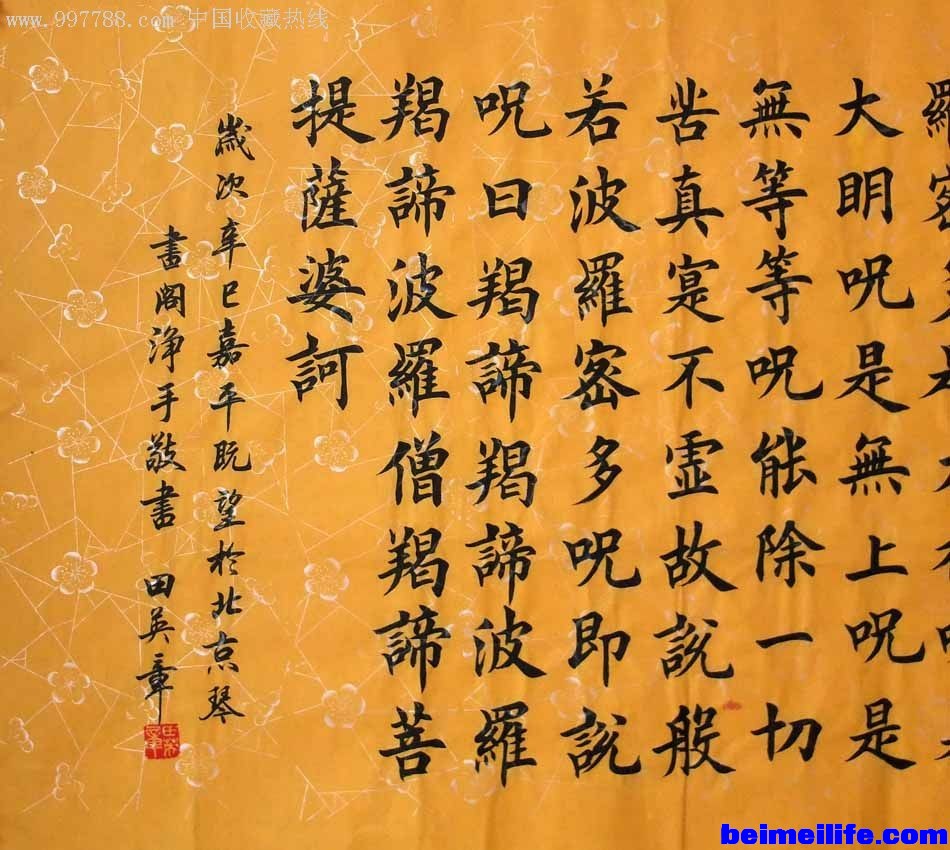 www.997788.com 中国收藏热线
大明呪是無上呪是
無等等呪能除一切
苦真寔不虛故說般
若波羅密多呪即說
呪曰羯諦羯諦波羅
羯諦波羅僧羯諦菩
提薩婆訶
歲次辛巳嘉平既望於北京琴
書閣淨手敬書 田英章
beimeilife.com